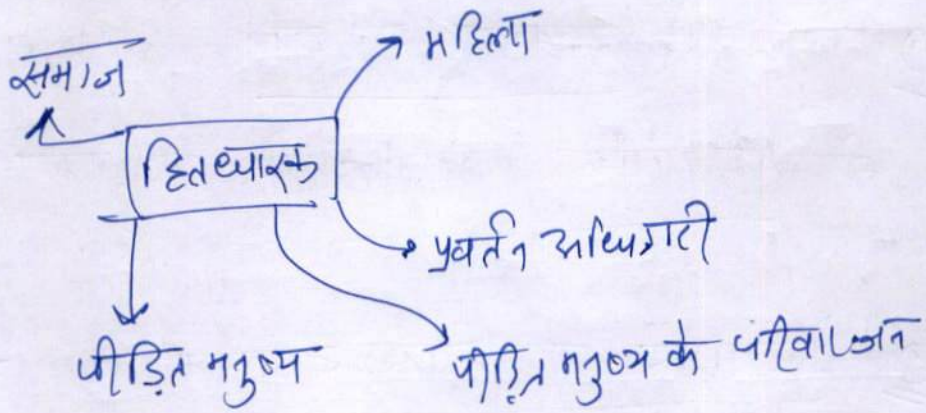 समाज
महिला
हितधारक
प्रवर्तन अधिकारी
पीड़ित मनुष्य
पीड़ित मनुष्य के परिवारजन